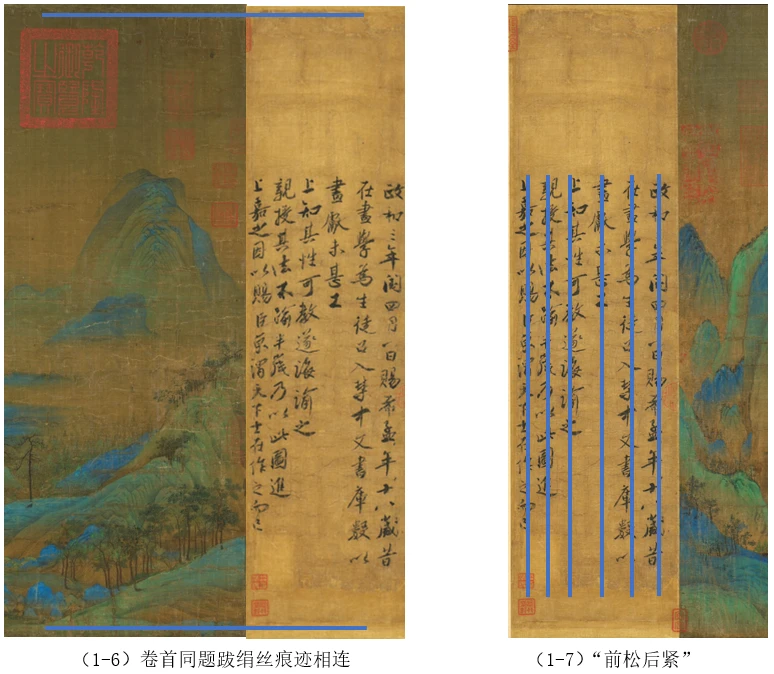 政和三年閏四月一日賜希孟年十八歲昔
在畫學為生徒召入禁中文書庫數以
畫獻未甚工
上知其性可教遂誨諭之
親授其法不踰半歲乃以此圖進
上嘉之因以賜臣京謂天下士在作之而已
(1-6)卷首同题跋绢丝痕迹相连
政和三年閏四月一日賜希孟年十八歲昔
在畫學為生徒召入禁中文書庫數以
畫獻未甚工
上知其性可教遂誨諭之
親授其法不踰半歲乃以此圖進
上嘉之因以賜臣京謂天下士在作之而已
(1-7)“前松后紧”